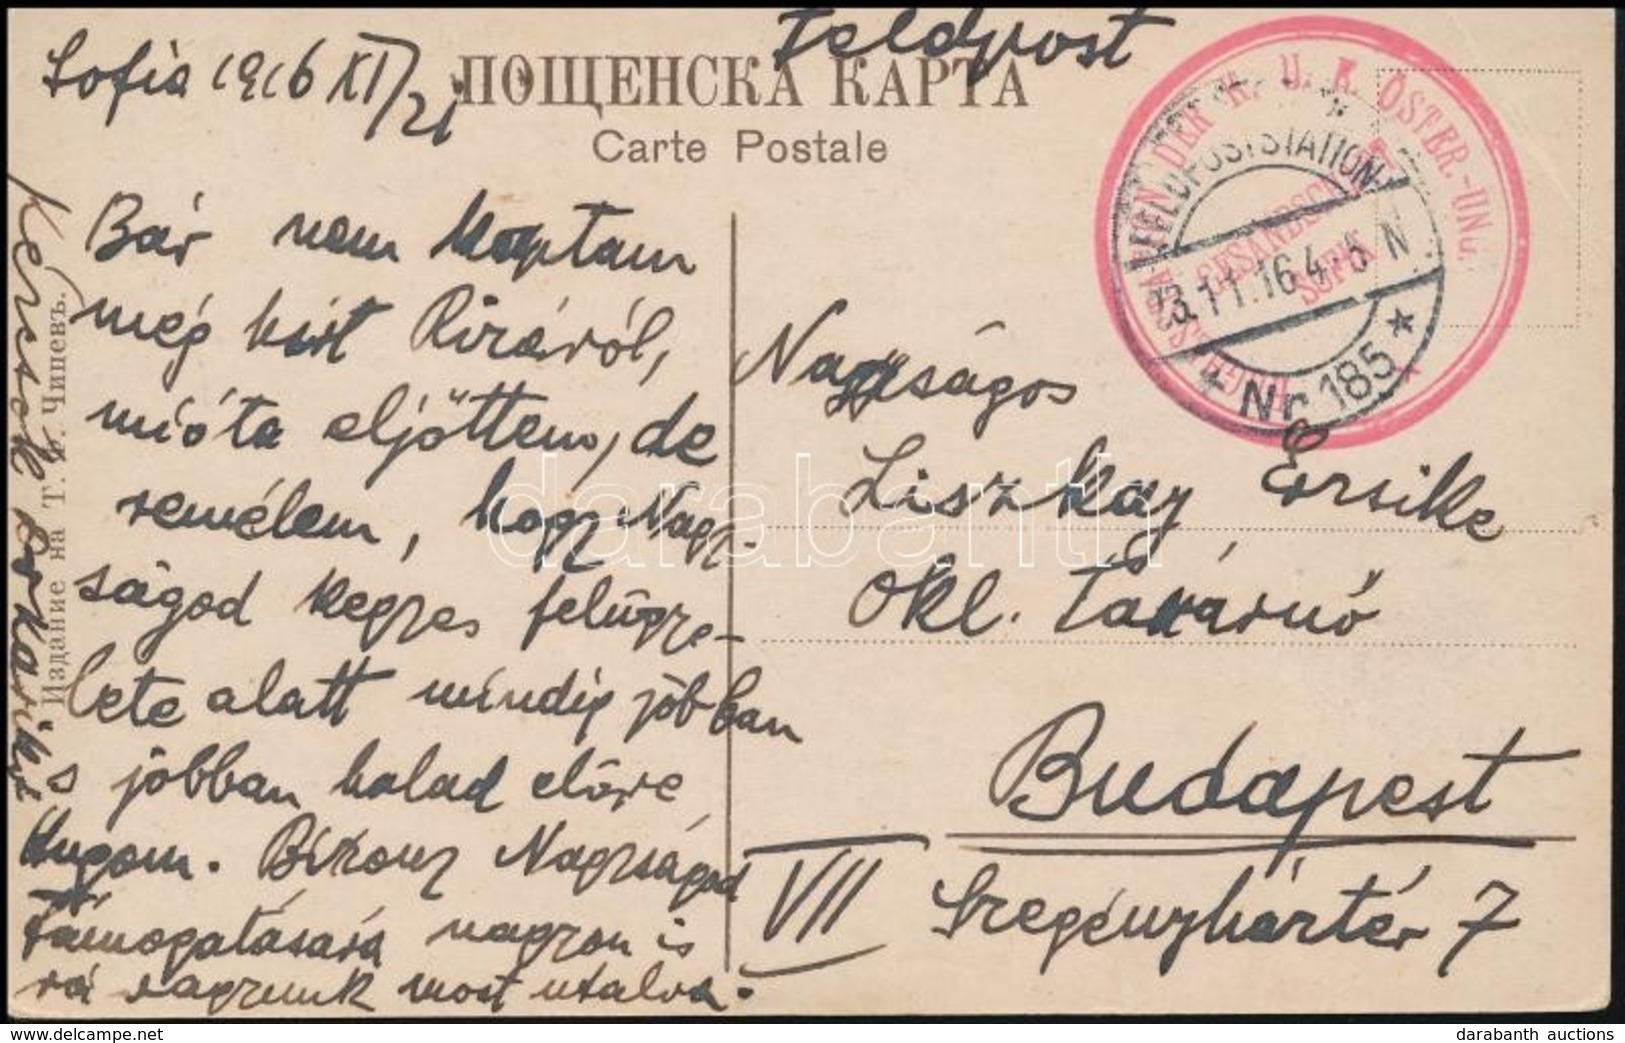 Feldpost
Sofia 1916 XI/21
ПОЩЕНСКА КАРТА
Carte Postale
Bár nem kaptam
még hirt Rizáról,
mióta eljöttem, de
remélem, hogy Nagy-
ságod kegyes felügye-
lete alatt mindig jobban
s jobban halad előre
Hugom. Bizony Nagyságod
támogatására nagyon is
rá vagyunk most utalva.
Издание на Т. Ф. Чипевъ.
K. U. K. ÖSTER.-UNG.
GESANDSCHAFT
SOFIA
FELDPOSTSTATION
23.11.16.4-5 N
Nr. 185
Nagyságos
Liszkay Ersike
okl. Tanárnő
Budapest
VII Szegényháztér 7
darabanth
darabanth auctions